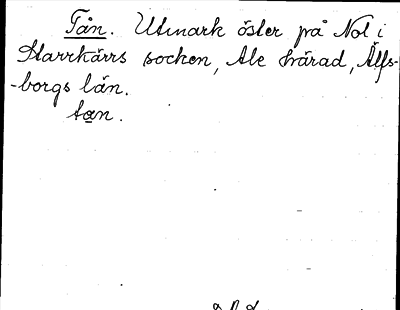 Tån. Utmark öster på Nol i
Starrkärrs socken, Ale härad, Älfs-
-borgs län.
tan.